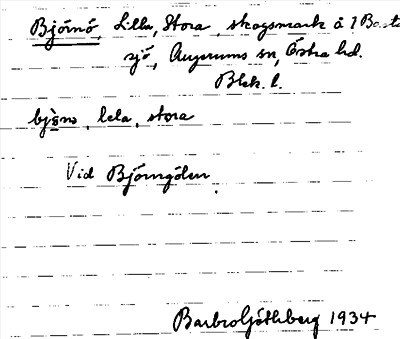 Björnö, Lilla, Stora, skogsmark å 1 Bosta
sjö, Augerums sn, Östra hd.
Blek. l.
björno, lela, stora
Vid Björngölen.
Barbro Ljóthberg 1934